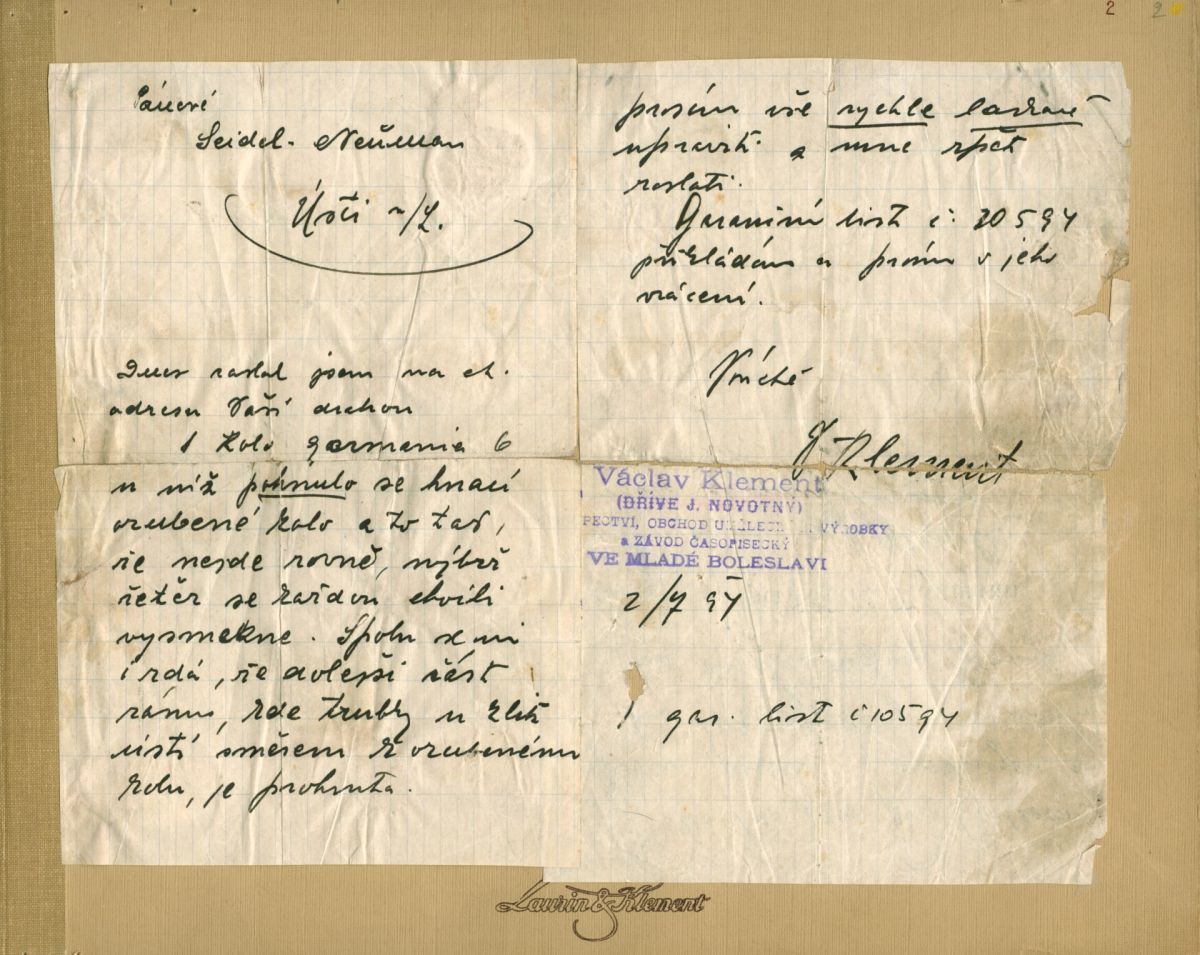 2
2
Pánové
Seidel - Neŭman
Ústí n/L.
Dnes zaslal jsem na ct.
adresu Vaší drahou
1 kolo germania 6
u níž pohnulo se hnací
ozubené kolo a to tak,
že nejde rovně, nýbrž
řetěz se každou chvíli
vysmekne. Spolu se mi
i zdá, že dolejší část
rámu, kde trubky u klik
ústí směrem k ozubenému
kolu, je prohnuta.
prosím vše rychle laskavě
upraviti a mne zpět
zaslati.
Garanční list č. 10594
přikládám a prosím o jeho
vrácení.
V úctě
Klement
Václav Klement
(DŘÍVE J. NOVOTNÝ)
PECTVÍ, OBCHOD UMĚLECK VÝROBKY
a ZÁVOD ČASOPISECKÝ
VE MLADÉ BOLESLAVI
2/7 94
1 gar. list č 10594
Laurin & Klement